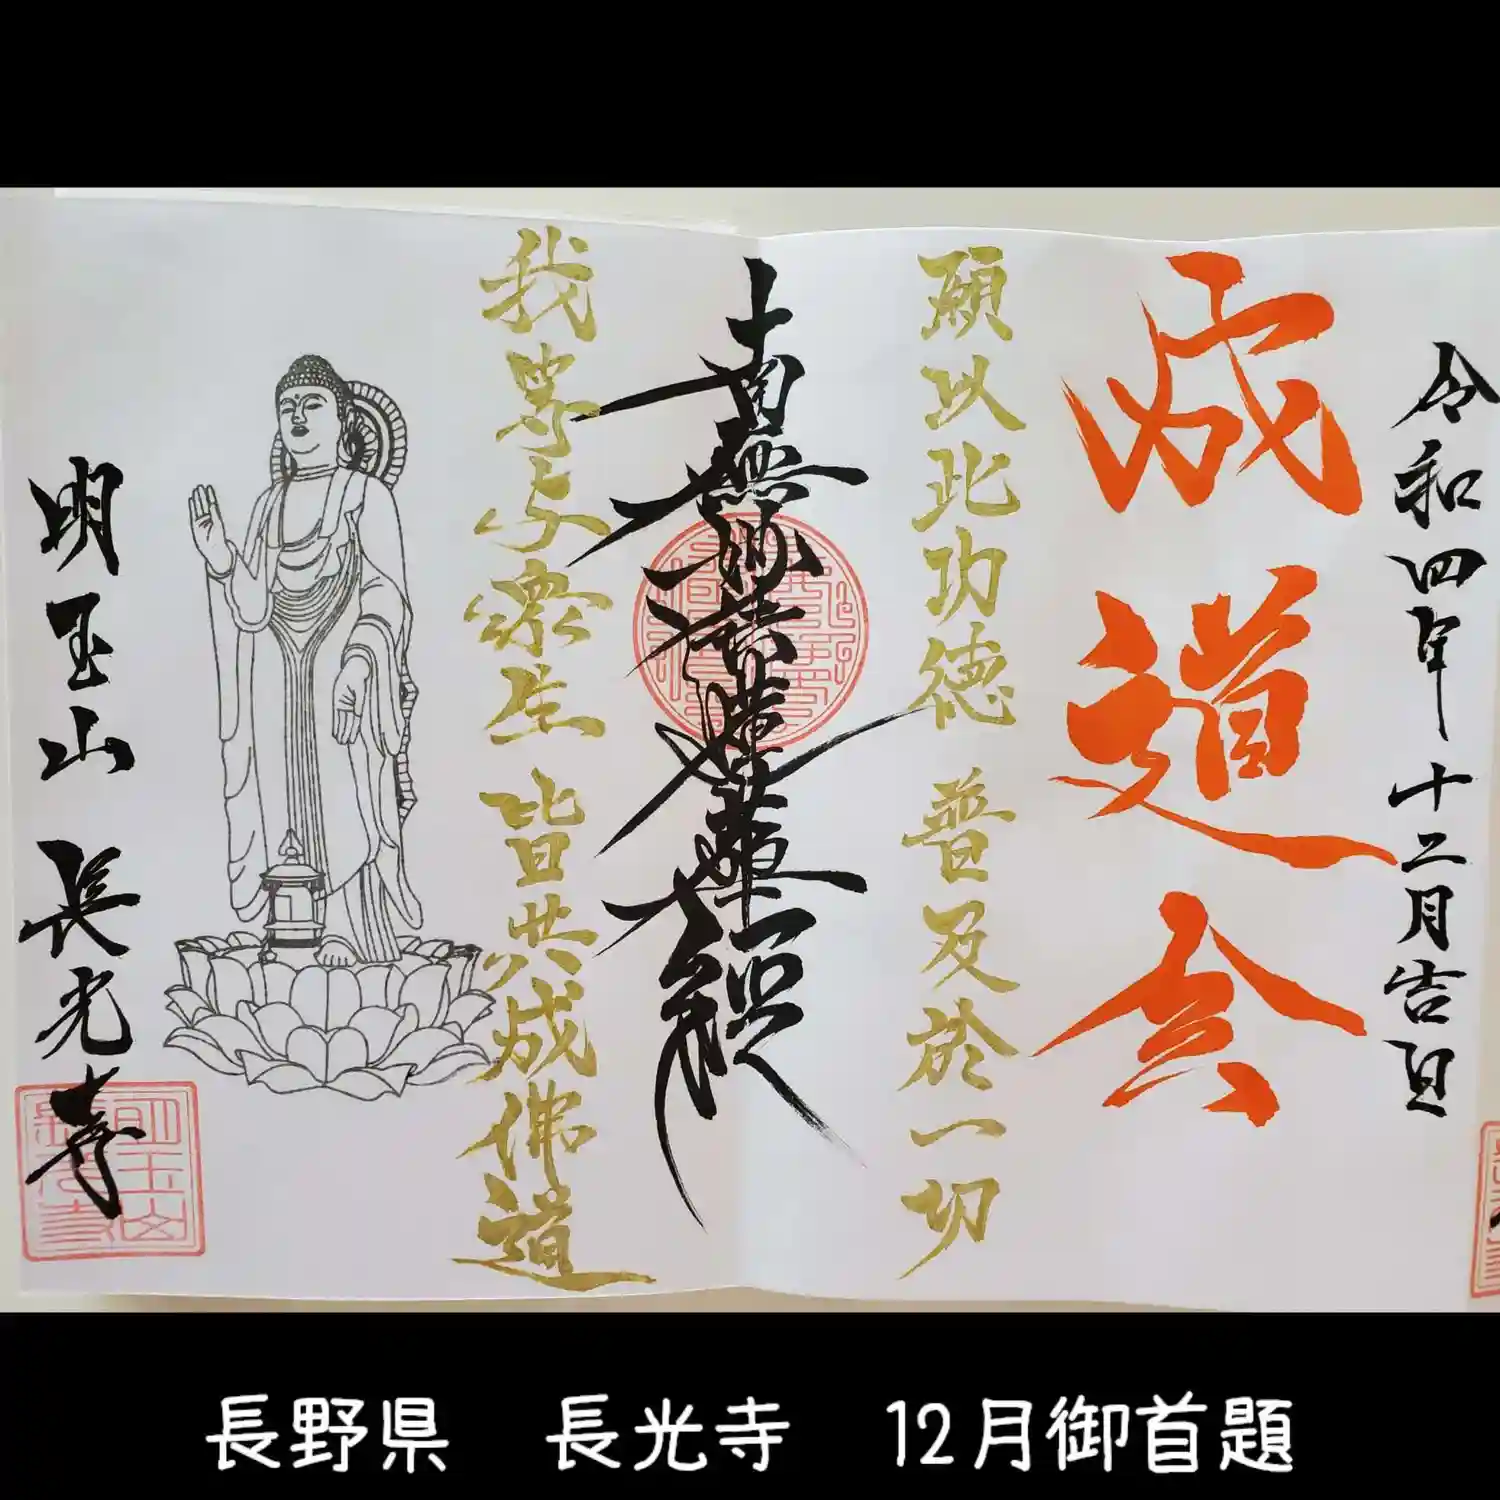 令和四年十二月吉日
成道会
願以此功徳 普及於一切
南無妙法蓮華経
我等与衆生 皆共成佛道
明玉山 長光寺
明玉山
長光寺
長野県 長光寺 12月御首題